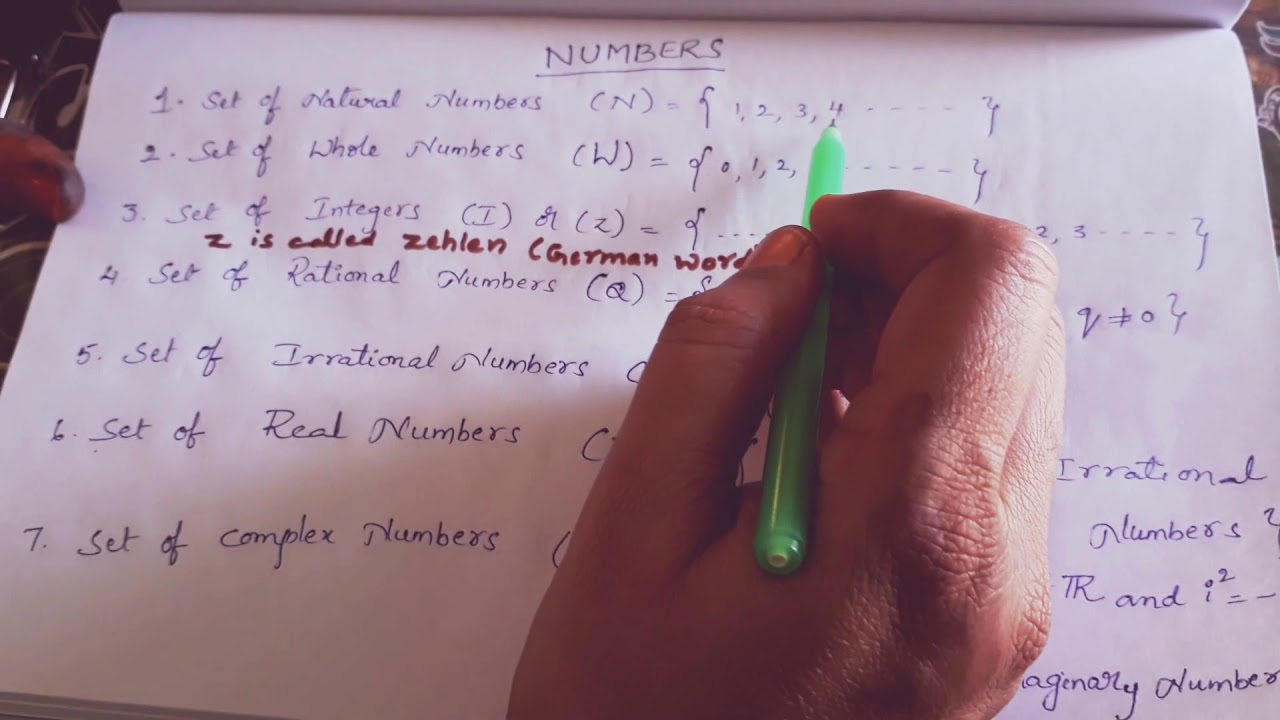 NUMBERS
1. Set of Natural Numbers (N) = { 1, 2, 3, 4 ----- }
2. Set of Whole Numbers (W) = { 0, 1, 2, ------ }
3. Set of Integers (I) or (Z) = { .... 2, 3 ----- }
Z is called Zehlen (German word
4 Set of Rational Numbers (Q) = { q ≠ 0 }
5. Set of Irrational Numbers (
6. Set of Real Numbers ( Irrational
Numbers }
7. Set of Complex Numbers ( IR and i² = -
aginary Number